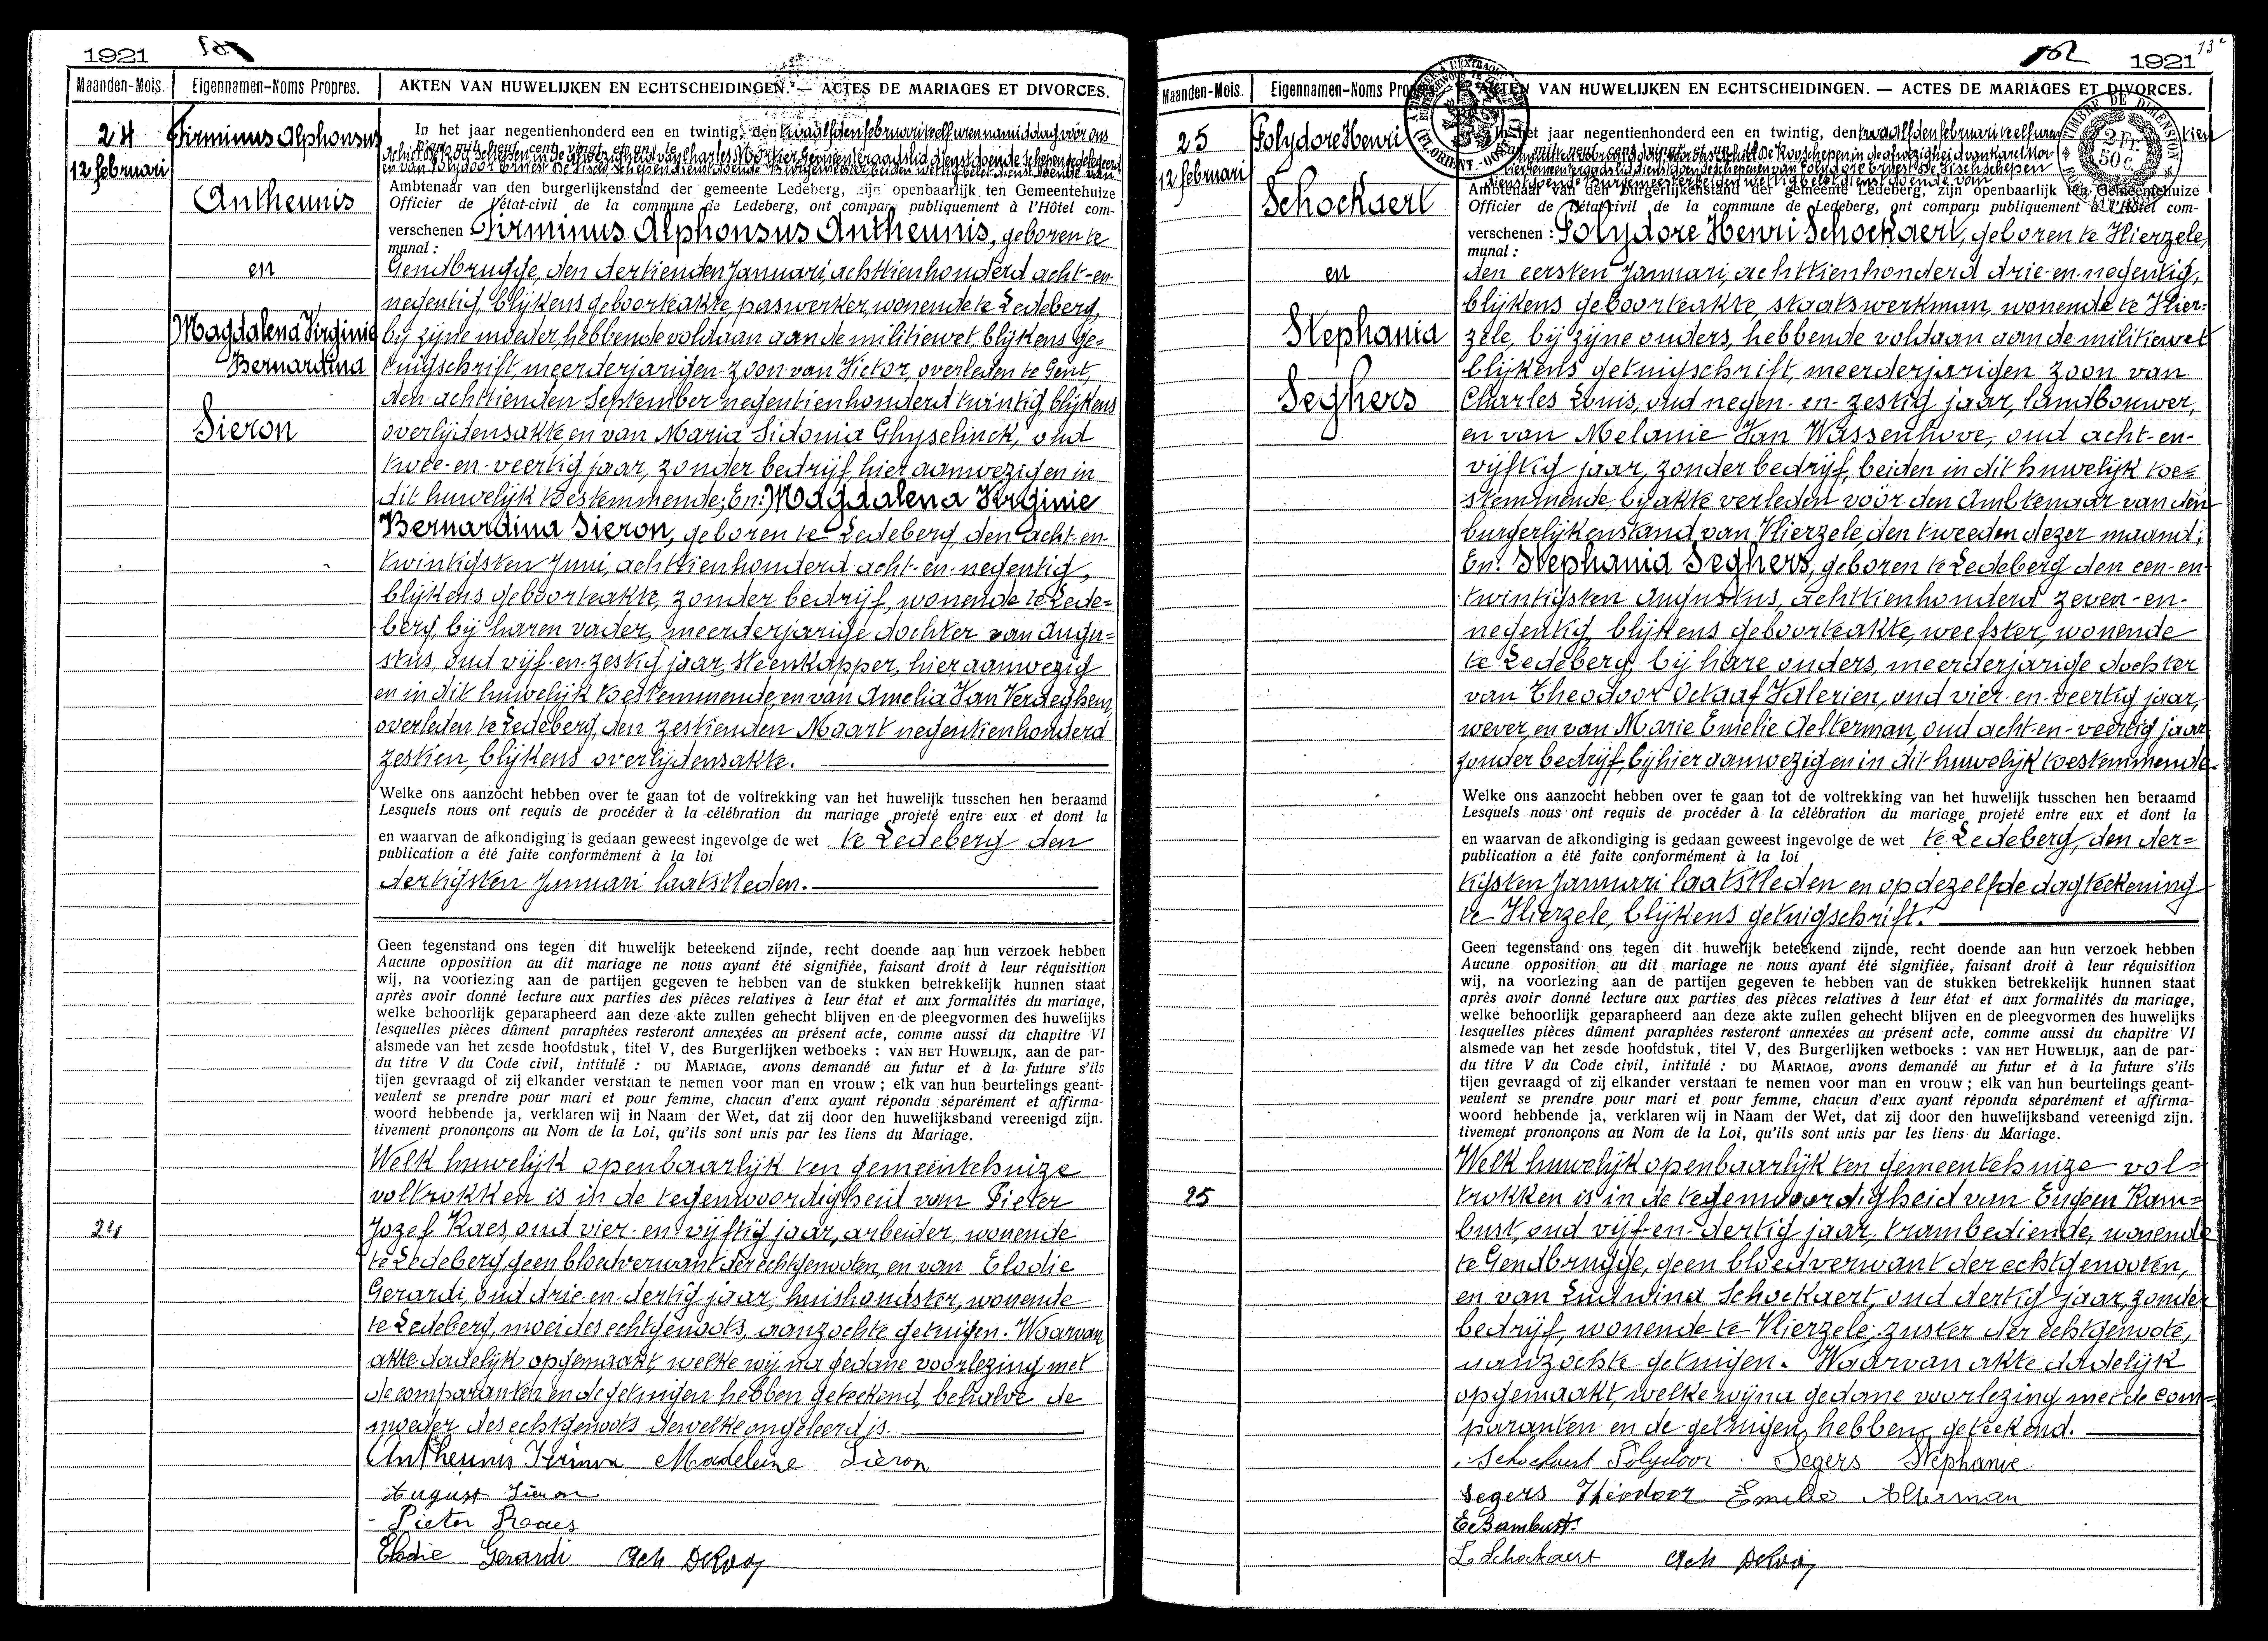 1921
Maanden-Mois. Eigennamen-Noms Propres. AKTEN VAN HUWELIJKEN EN ECHTSCHEIDINGEN. — ACTES DE MARIAGES ET DIVORCES.
24 Firminus Alphonsus
12 februari
Antheunis
en
Magdalena Virginie
Bernardina
Sieron
24
In het jaar negentienhonderd een en twintig, den twaalfden februari te elf uren namiddag vóór ons
L'an mil neuf cent vingt et un, le
Ambtenaar van den burgerlijkenstand der gemeente Ledeberg, zijn openbaarlijk ten Gemeentehuize
Officier de l'état-civil de la commune de Ledeberg, ont comparu publiquement à l'Hôtel com-
verschenen Firminus Alphonsus Antheunis, geboren te
munal :
Gendbrugge, den dertienden Januari, achttienhonderd acht-en-
negentig, blijkens geboorteakte, paswerker, wonende te Ledeberg,
bij zijne moeder, hebbende voldaan aan de militiewet blijkens ge=
tuigschrift, meerderjarigen zoon van Victor, overleden te Gent,
den achttienden September negentienhonderd twintig blijkens
overlijdensakte en van Maria Sidonia Ghyselinck, oud
twee-en-veertig jaar, zonder bedrijf, hier aanwezig en in
dit huwelijk toestemmende; En: Magdalena Virginie
Bernardina Sieron, geboren te Ledeberg, den acht-en-
twintigsten Juni, achttienhonderd acht-en-negentig,
blijkens geboorteakte, zonder bedrijf, wonende te Lede=
berg, bij haren vader, meerderjarige dochter van Augu=
stus, oud vijf-en-zestig jaar, steenkapper, hier aanwezig
en in dit huwelijk toestemmende, en van Amelia Van Verdeghem,
overleden te Ledeberg, den zestienden Maart negentienhonderd
zestien, blijkens overlijdensakte.
Welke ons aanzocht hebben over te gaan tot de voltrekking van het huwelijk tusschen hen beraamd
Lesquels nous ont requis de procéder à la célébration du mariage projeté entre eux et dont la
en waarvan de afkondiging is gedaan geweest ingevolge de wet te Ledeberg den
publication a été faite conformément à la loi
dertigsten Januari laatstleden.
Geen tegenstand ons tegen dit huwelijk beteekend zijnde, recht doende aan hun verzoek hebben
Aucune opposition au dit mariage ne nous ayant été signifiée, faisant droit à leur réquisition
wij, na voorlezing aan de partijen gegeven te hebben van de stukken betrekkelijk hunnen staat
après avoir donné lecture aux parties des pièces relatives à leur état et aux formalités du mariage,
welke behoorlijk geparapheerd aan deze akte zullen gehecht blijven en de pleegvormen des huwelijks
lesquelles pièces dûment paraphées resteront annexées au présent acte, comme aussi du chapitre VI
alsmede van het zesde hoofdstuk, titel V, des Burgerlijken wetboeks : VAN HET HUWELIJK, aan de par-
du titre V du Code civil, intitulé : DU MARIAGE, avons demandé au futur et à la future s'ils
tijen gevraagd of zij elkander verstaan te nemen voor man en vrouw ; elk van hun beurtelings geant-
veulent se prendre pour mari et pour femme, chacun d'eux ayant répondu séparément et affirma-
woord hebbende ja, verklaren wij in Naam der Wet, dat zij door den huwelijksband vereenigd zijn.
tivement prononçons au Nom de la Loi, qu'ils sont unis par les liens du Mariage.
Welk huwelijk openbaarlijk ten gemeentehuize
voltrokken is in de tegenwoordigheid van Pieter
Jozef Raes, oud vier-en-vijftig jaar, arbeider, wonende
te Ledeberg, geen bloedverwant der echtgenooten, en van Elodie
Gerardi, oud drie-en-dertig jaar, huishoudster, wonende
te Ledeberg, moei des echtgenoots, aanzochte getuigen. Waarvan
akte dadelijk opgemaakt, welke wij na gedane voorlezing met
de comparanten en de getuigen hebben geteekend, behalve de
moeder des echtgenoots dewelke ongeleerd is.
Antheunis Firmin Madeleine Sieron
August Sieron
Pieter Raes
Elodie Gerardi Ach DeKoy
162 1921 132
Maanden-Mois. Eigennamen-Noms Propres. AKTEN VAN HUWELIJKEN EN ECHTSCHEIDINGEN. — ACTES DE MARIAGES ET DIVORCES.
TIMBRE DE DIMENSION
2 Fr.
50 c.
25 Polydore Henri
12 februari
Schockaert
en
Stephania
Seghers
25
In het jaar negentienhonderd een en twintig, den twaalfden februari te elf uren
mil neuf cent vingt et un, le
Ambtenaar van den burgerlijkenstand der gemeente Ledeberg, zijn openbaarlijk ten Gemeentehuize
Officier de l'état-civil de la commune de Ledeberg, ont comparu publiquement à l'Hôtel com-
verschenen : Polydore Henri Schockaert, geboren te Vlierzele,
munal :
den eersten Januari, achttienhonderd drie-en-negentig,
blijkens geboorteakte, staatswerkman, wonende te Vlier=
zele, bij zijne ouders, hebbende voldaan aan de militiewet
blijkens getuigschrift, meerderjarigen zoon van
Charles Louis, oud negen-en-zestig jaar, landbouwer,
en van Melanie Van Wassenhove, oud acht-en-
vijftig jaar, zonder bedrijf, beiden in dit huwelijk toe=
stemmende, bij akte verleden vóór den Ambtenaar van den
burgerlijkenstand van Vlierzele, den tweeden dezer maand;
En: Stephania Seghers, geboren te Ledeberg den een-en-
twintigsten Augustus, achttienhonderd zeven-en-
negentig, blijkens geboorteakte, weefster, wonende
te Ledeberg, bij hare ouders, meerderjarige dochter
van Theodoor Octaaf Valerien, oud vier-en-veertig jaar,
wever, en van Marie Emelie Aelterman, oud acht-en-veertig jaar
zonder bedrijf, bij hier aanwezig en in dit huwelijk toestemmende
Welke ons aanzocht hebben over te gaan tot de voltrekking van het huwelijk tusschen hen beraamd
Lesquels nous ont requis de procéder à la célébration du mariage projeté entre eux et dont la
en waarvan de afkondiging is gedaan geweest ingevolge de wet te Ledeberg, den der=
publication a été faite conformément à la loi
tigsten Januari laatstleden en op dezelfde dagteekening
te Vlierzele, blijkens getuigschrift.
Geen tegenstand ons tegen dit huwelijk beteekend zijnde, recht doende aan hun verzoek hebben
Aucune opposition au dit mariage ne nous ayant été signifiée, faisant droit à leur réquisition
wij, na voorlezing aan de partijen gegeven te hebben van de stukken betrekkelijk hunnen staat
après avoir donné lecture aux parties des pièces relatives à leur état et aux formalités du mariage,
welke behoorlijk geparapheerd aan deze akte zullen gehecht blijven en de pleegvormen des huwelijks
lesquelles pièces dûment paraphées resteront annexées au présent acte, comme aussi du chapitre VI
alsmede van het zesde hoofdstuk, titel V, des Burgerlijken wetboeks : VAN HET HUWELIJK, aan de par-
du titre V du Code civil, intitulé : DU MARIAGE, avons demandé au futur et à la future s'ils
tijen gevraagd of zij elkander verstaan te nemen voor man en vrouw ; elk van hun beurtelings geant-
veulent se prendre pour mari et pour femme, chacun d'eux ayant répondu séparément et affirma-
woord hebbende ja, verklaren wij in Naam der Wet, dat zij door den huwelijksband vereenigd zijn.
tivement prononçons au Nom de la Loi, qu'ils sont unis par les liens du Mariage.
Welk huwelijk openbaarlijk ten gemeentehuize vol=
trokken is in de tegenwoordigheid van Eugeen Ram=
bust, oud vijf-en-dertig jaar, trambediende, wonende
te Gendbrugge, geen bloedverwant der echtgenooten,
en van Ludwina Schockaert, oud dertig jaar, zonder
bedrijf, wonende te Vlierzele, zuster der echtgenoote,
aanzochte getuigen. Waarvan akte dadelijk
opgemaakt, welke wij na gedane voorlezing met de com=
paranten en de getuigen, hebben geteekend.
Schockaert Polydoor Segers Stephanie
Segers Theodoor Emelie Alterman
L. Schockaert Ach DeKoy